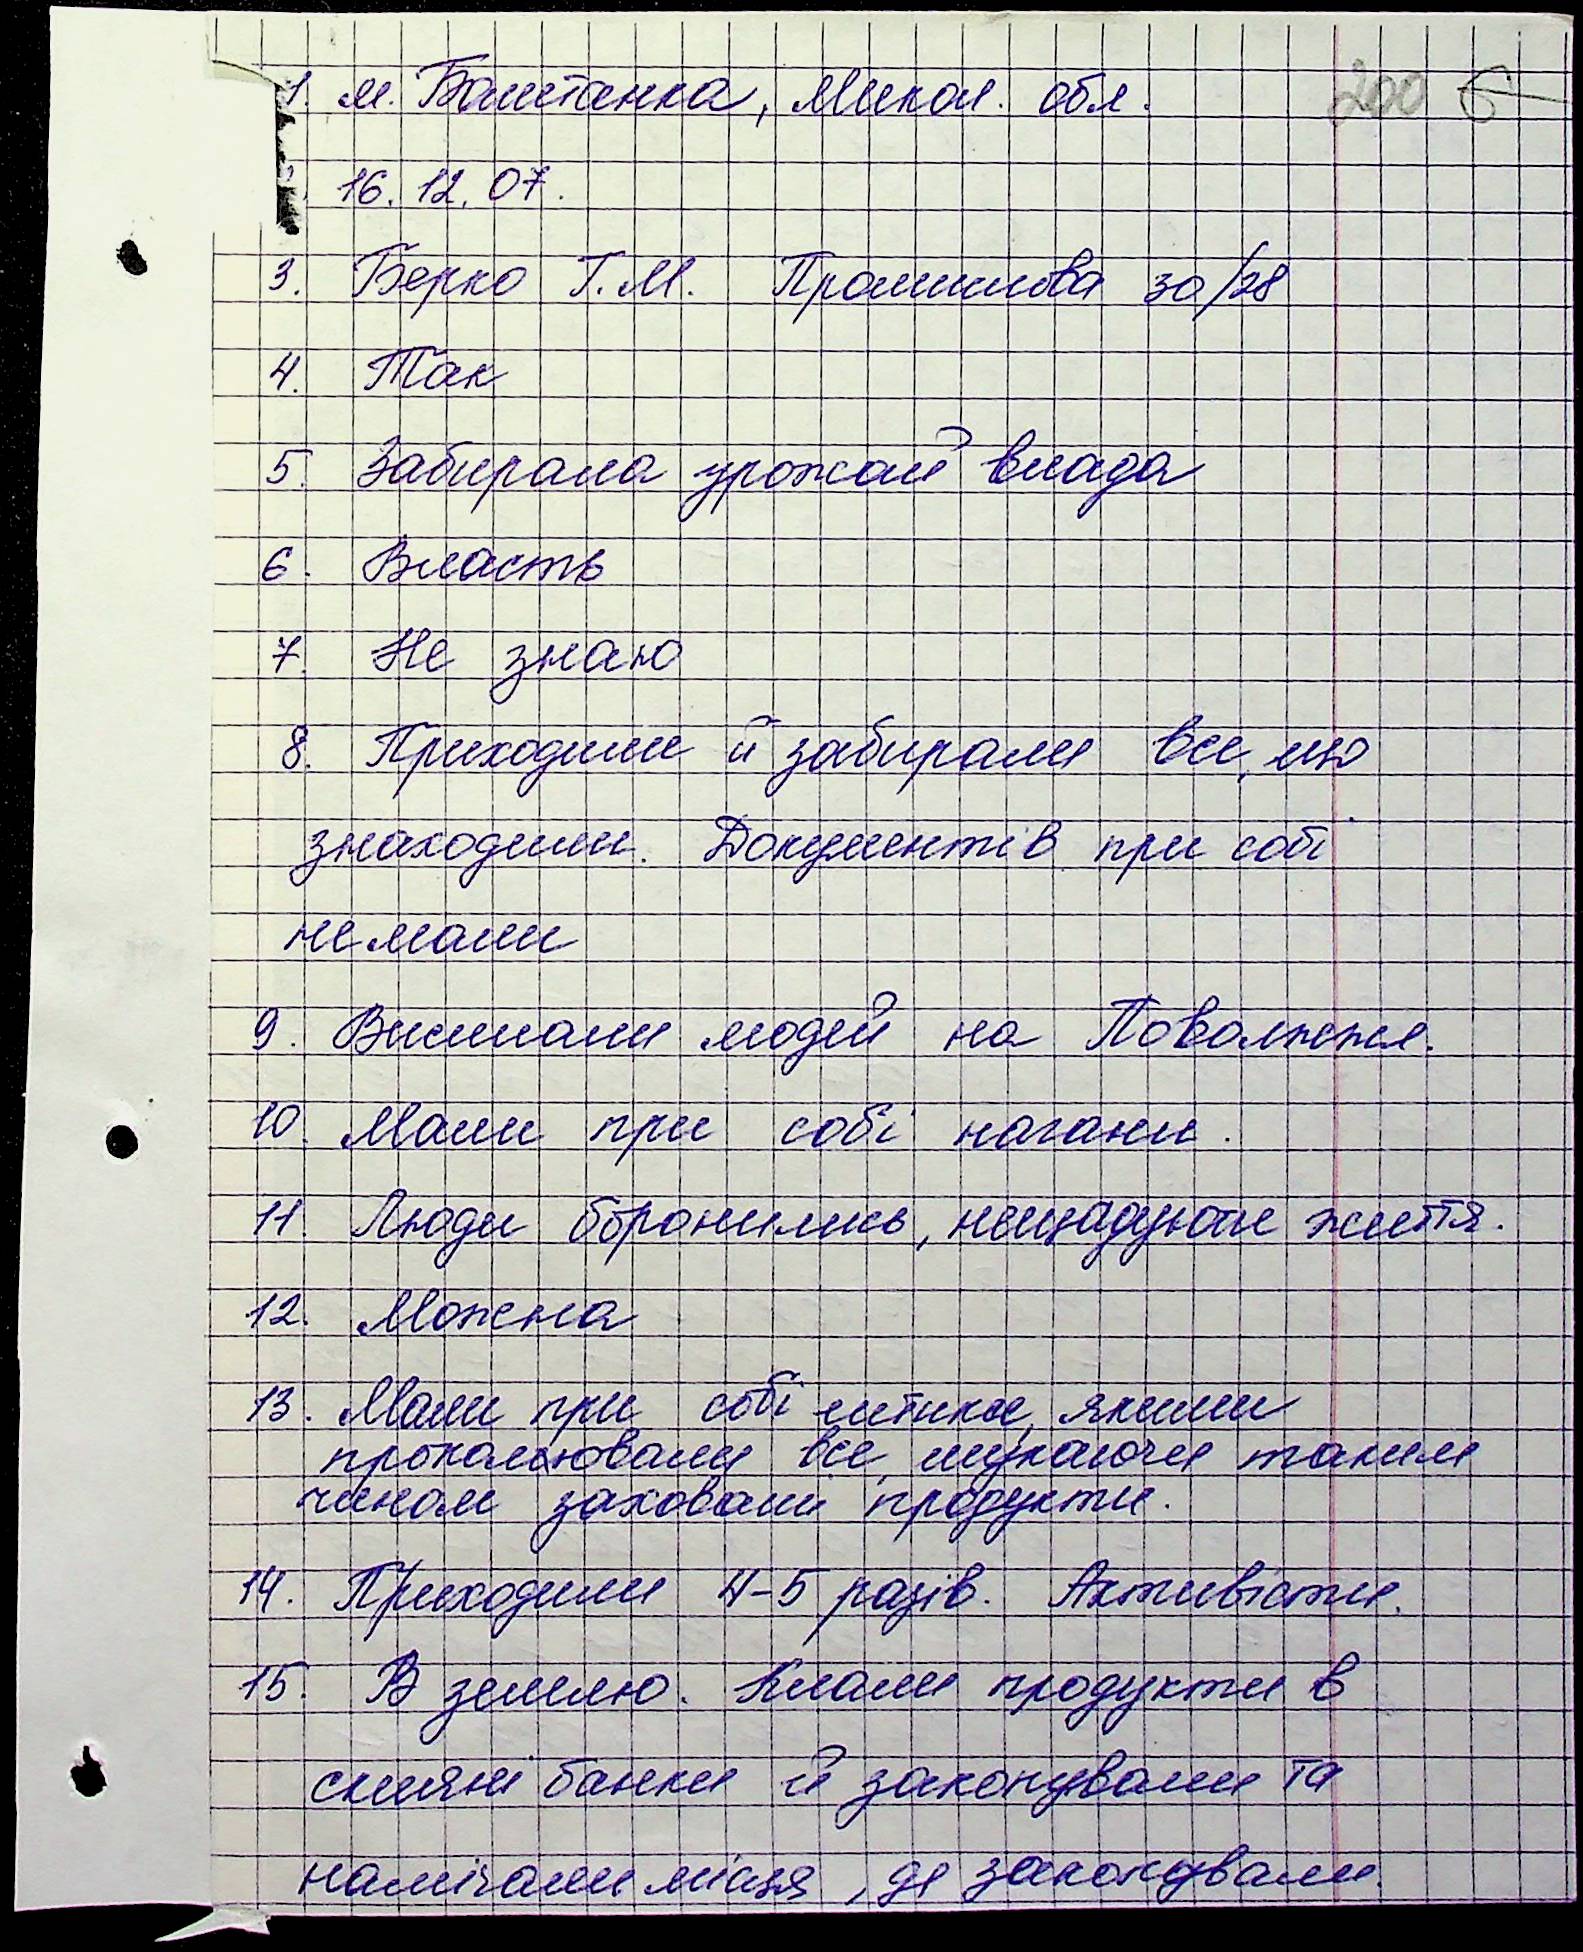 1. м. Баштанка, Микол. обл. 200
. 16. 12. 07.
3. Берко Г. М. Промислова 30/28
4. Так
5. Забирала урожай влада
6. Власть
7. Не знаю
8. Приходили й забирали все, що
знаходили. Документів при собі
не мали
9. Висилали людей на Поволжжя.
10. Мали при собі нагани.
11. Люди боронились, нещадуючи життя.
12. Можна
13. Мали при собі штики, якими
проколювали все, шукаючи таким
чином заховані продукти.
14. Приходили 4-5 разів. Активісти.
15. В землю. Клали продукти в
скляні банки й закопували та
намічали місця, де закопували.